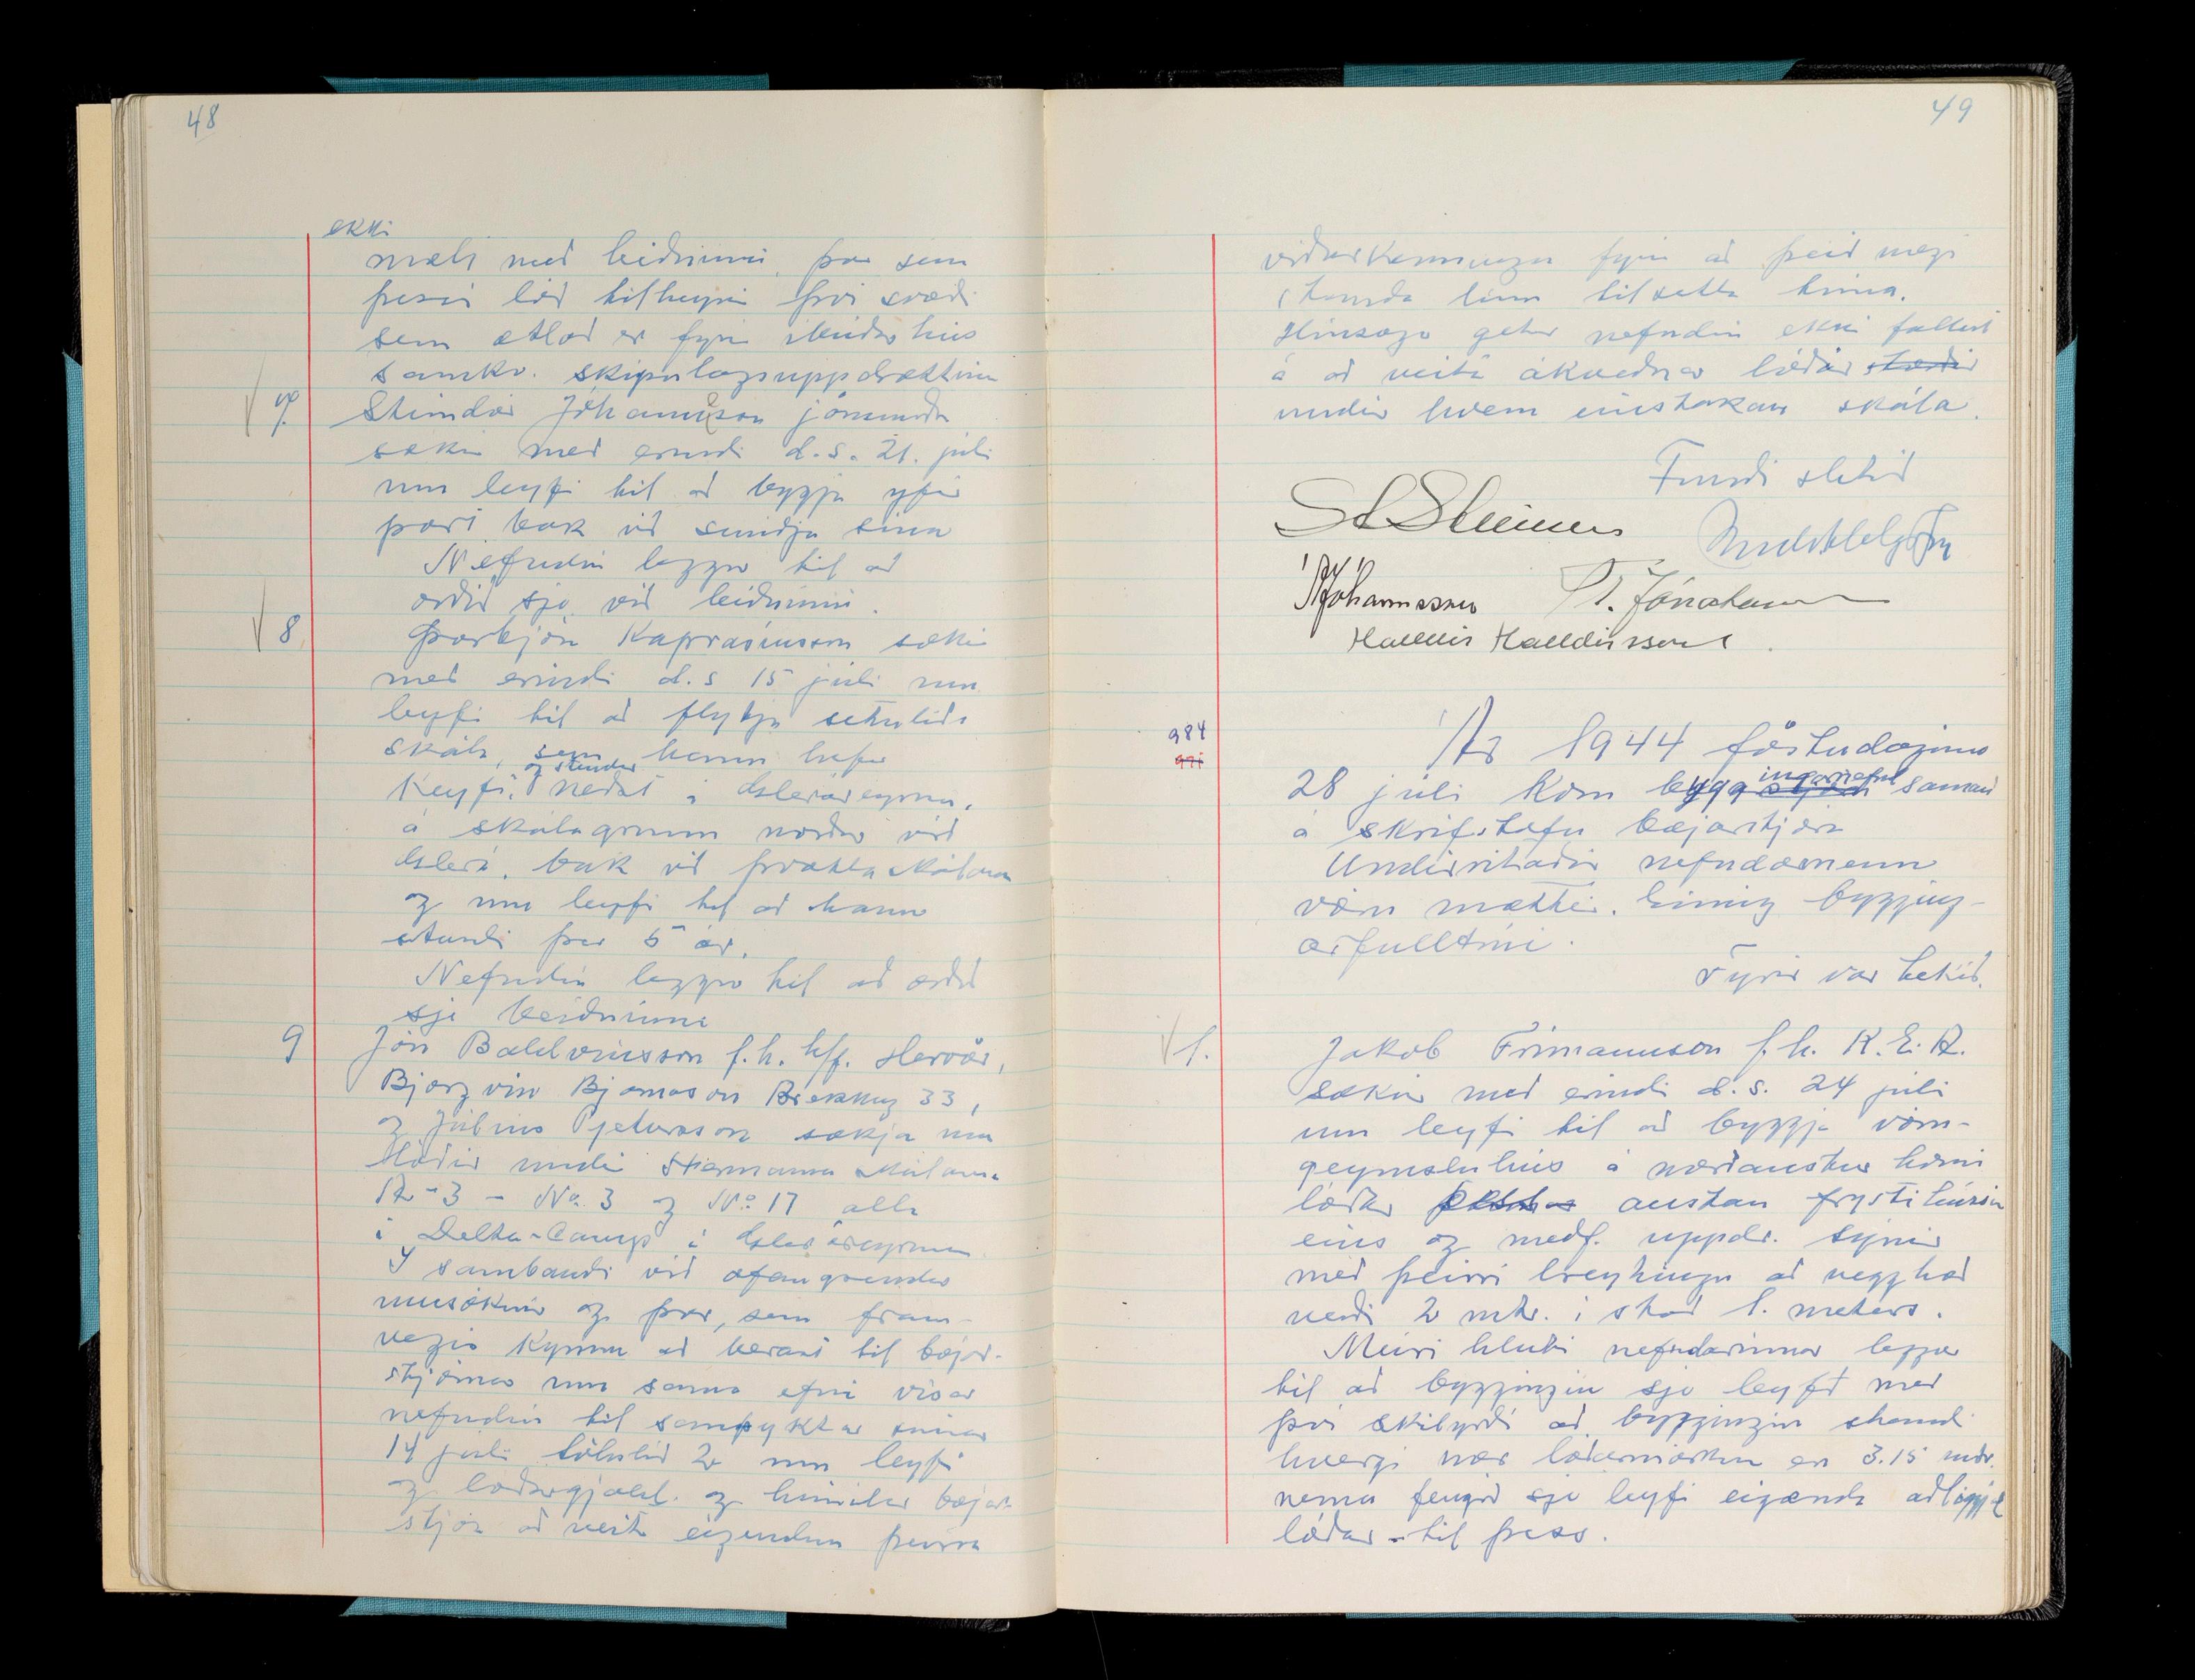 48
ekki
mælt með beiðninni, þar sem
þessi lóð tilheyri því svæði
sem ætlað er fyrir íbúðarhús
samkv. skipulagsuppdrættinum
7. Steindór Jóhannesson járnsmiður
sækir með erindi d.s. 21. júli
um leyfi til að byggja yfir
port bak við smiðju sína
Nefndin leggur til að
orðið sje við beiðninni.
8 Þorbjörn Kaprasíusson sækir
með erindi d.s 15 júli um
leyfi til að flytja setuliðs
skála, sem hann hefur
og stendur
keypt, neðst á Gleráreyrum,
á skálagrunn norður við
Glerá, bak við þvottaskálann
og um leyfi til að hann
standi þar 5 ár.
Nefndin leggur til að orðið
sje beiðninni
9 Jón Baldvinsson f.h. h/f. Hervör,
Björgvin Bjarnason Brekkug 33,
og Júlíus Pjetursson sækja um
lóðir undir Hermanna skálana
R-3 - No. 3 og No. 17 alla
í Delta-Camp á Gleráreyrum
Í sambandi við ofangreindar
umsóknir og þær, sem fram-
vegis kynnu að berast til bæjar-
stjórnar um sama efni vísar
nefndin til samþyktar sinnar
14 júli tölulið 2 um leyfi
og lóðargjald. og heimilar bæjar-
stjóra að veita eigendum þeirra
49
viðurkenningu fyrir að þeir megi
standa um tiltekinn tíma.
Hinsvegar getur nefndin ekki fallist
á að veita ákveðnar lóðir
undir hvern einstakan skála.
Fundi slitið
St Steinsen
Jóhannesson T. Jónatansson
Halldór Halldórsson
984
Ár 1944 föstudaginn
inganefnd
28 júli kom bygg saman
á skrifstofu bæjarstjóra
Undirritaðir nefndarmenn
voru mættir. Einnig bygging-
arfulltrúi.
Fyrir var tekið.
1. Jakob Frímannsson f.h. K.E.A.
sækir með erindi d.s. 24 júli
um leyfi til að byggja vöru-
geymsluhús á norðaustur horni
lóðar austan frystihússins
eins og meðf. uppdr. sýnir
með þeirri breytingu að vegghæð
verði 2 mtr. í stað 1. meters.
Meiri hluti nefndarinnar leggur
til að byggingin sje leyfð með
því skilyrði að byggingin standi
hvergi nær lóðarmörkum en 3.15 mtr.
nema fengið sje leyfi eigenda aðliggj
lóðar til þess.